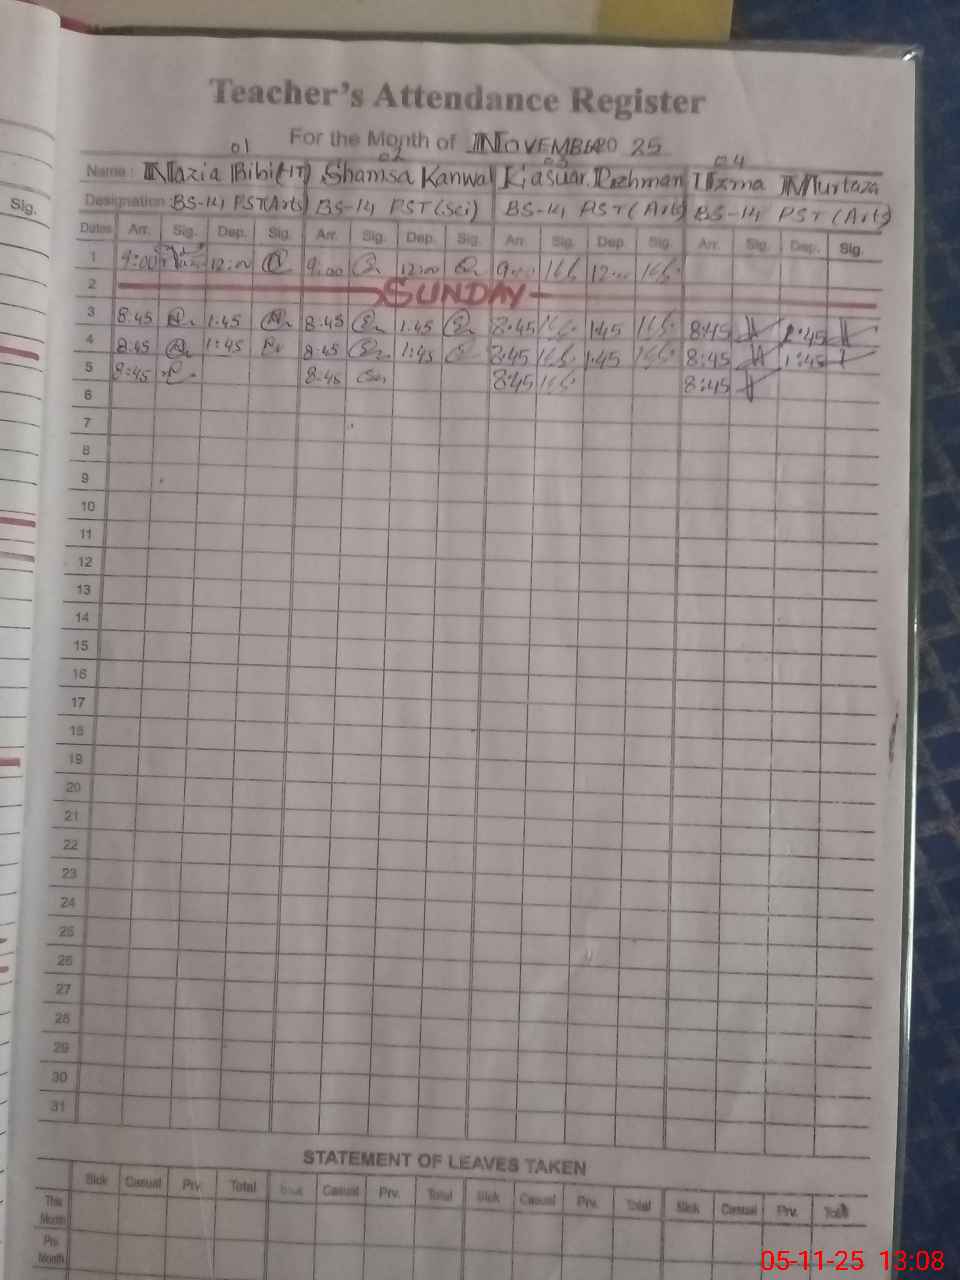 Teacher's Attendance Register
For the Month of NOVEMBER 2025
01 02 03 04
Name: Nazia Bibi (HT) Shamsa Kanwal Kasuar Rehman Uzma Murtaza
Designation BS-14, PST (Arts) BS-14, PST (Sci) BS-14, PST (Arts) BS-14, PST (Arts)
Sig.
Dates Arr. Sig. Dep. Sig. Arr. Sig. Dep. Sig. Arr. Sig. Dep. Sig. Arr. Sig. Dep. Sig.
1 9:00 12:00 9:00 12:00 9:00 12:00
2 SUNDAY
3 8:45 1:45 8:45 1:45 8:45 1:45 8:45 1:45
4 8:45 1:45 8:45 1:45 8:45 1:45 8:45 1:45
5 8:45 8:45 8:45 8:45
6
7
8
9
10
11
12
13
14
15
16
17
18
19
20
21
22
23
24
25
26
27
28
29
30
31
STATEMENT OF LEAVES TAKEN
Sick Casual Prv. Total Sick Casual Prv. Total Sick Casual Prv. Total Sick Casual Prv. Total
This Month
Prv. Month
05-11-25 13:08